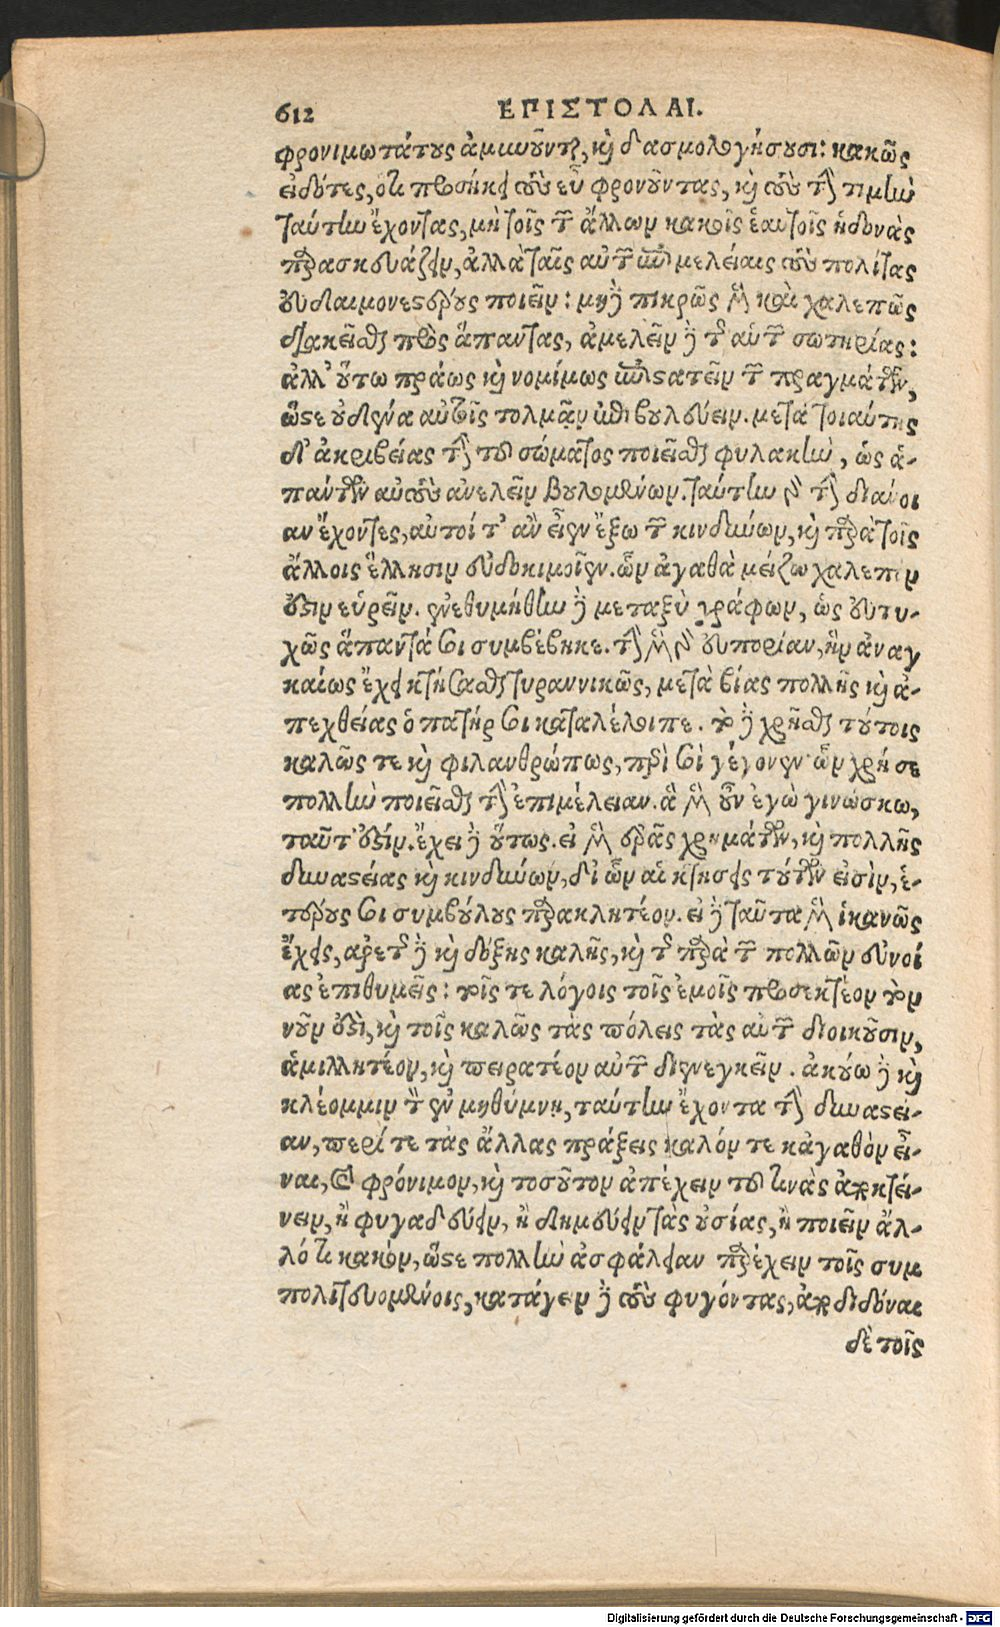 612 ΕΠΙΣΤΟΛΑΙ.
φρονιμωτάτους ἀμυνοῦνται, καὶ δασμολογήσουσι: κακῶς
εἰδότες, ὅτι προσήκει τοὺς εὖ φρονοῦντας, καὶ τοὺς τὴν τιμὴν
ταύτην ἔχοντας, μὴ τοῖς τῶν ἄλλων κακοῖς ἑαυτοῖς ἡδονὰς
παρασκευάζειν, ἀλλὰ ταῖς αὑτῶν ἐπιμελείαις τοὺς πολίτας
εὐδαιμονεστέρους ποιεῖν: μηδὲ πικρῶς μὲν καὶ χαλεπῶς
διακεῖσθαι πρὸς ἅπαντας, ἀμελεῖν δὲ τῆς αὑτῶν σωτηρίας:
ἀλλ' οὕτω πράως καὶ νομίμως ἐπιστατεῖν τῶν πραγμάτων,
ὥστε οὐδένα αὐτοῖς τολμᾷν ἐπιβουλεύειν. μετὰ τοιαύτης
δ' ἀκριβείας τὴν τοῦ σώματος ποιεῖσθαι φυλακὴν, ὡς ἁ-
πάντων αὐτοὺς ἀνελεῖν βουλομένων. ταύτην γὰρ τὴν διάνοι
αν ἔχοντες, αὐτοί τ' ἂν εἶεν ἔξω τῶν κινδύνων, καὶ παρὰ τοῖς
ἄλλοις ἕλλησιν εὐδοκιμοῖεν. ὧν ἀγαθὰ μείζω χαλεπὸν
ἐστιν εὑρεῖν. ἐνεθυμήθην δὲ μεταξὺ γράφων, ὡς εὐτυ-
χῶς ἅπαντά σοι συμβέβηκε. τὴν μὲν γὰρ εὐπορίαν, ἣν ἀναγ
καίως ἔχει κτήσασθαι τυραννικῶς, μετὰ βίας πολλῆς καὶ ἀ-
πεχθείας ὁ πατήρ σοι καταλέλοιπε. τὸ δὲ χρῆσθαι τούτοις
καλῶς τε καὶ φιλανθρώπως, ἐπὶ σοὶ γέγονεν ὧν χρή σε
πολλὴν ποιεῖσθαι τὴν ἐπιμέλειαν. ἃ μὲν οὖν ἐγὼ γινώσκω,
ταῦτ' ἐστίν. ἔχει δὲ οὕτως. εἰ μὲν ἐρᾷς χρημάτων, καὶ πολλῆς
δυναστείας καὶ κινδύνων, δι' ὧν αἱ κτήσεις τούτων εἰσὶν, ἑ-
τέρους σοι συμβούλους παρακλητέον. εἰ δὲ ταῦτα μὲν ἱκανῶς
ἔχεις, ἀρετῆς δὲ καὶ δόξης καλῆς, καὶ τῆς παρὰ τῶν πολλῶν εὐνοί
ας ἐπιθυμεῖς: τοῖς τε λόγοις τοῖς ἐμοῖς προσεκτέον τὸν
νῦν ἐστὶ, καὶ τοῖς καλῶς τὰς πόλεις τὰς αὑτῶν διοικοῦσιν,
ἁμιλλητέον, καὶ πειρατέον αὐτῶν διενεγκεῖν. ἀκούω δὲ καὶ
κλέομμιν τὸν ἐν μηθύμνῃ, ταύτην ἔχοντα τὴν δυναστεί-
αν, περί τε τὰς ἄλλας πράξεις καλόν τε κἀγαθὸν εἶ-
ναι, καὶ φρόνιμον, καὶ τοσοῦτον ἀπέχειν τοῦ τινὰς ἀποκτεί-
νειν, ἢ φυγαδεύειν, ἢ δημεύειν τὰς οὐσίας, ἢ ποιεῖν ἄλ-
λό τι κακὸν, ὥστε πολλὴν ἀσφάλειαν παρέχειν τοῖς συμ
πολιτευομένοις, κατάγειν δὲ τοὺς φυγόντας, ἀποδιδόναι
δὲ τοῖς
Digitalisierung gefördert durch die Deutsche Forschungsgemeinschaft - DFG